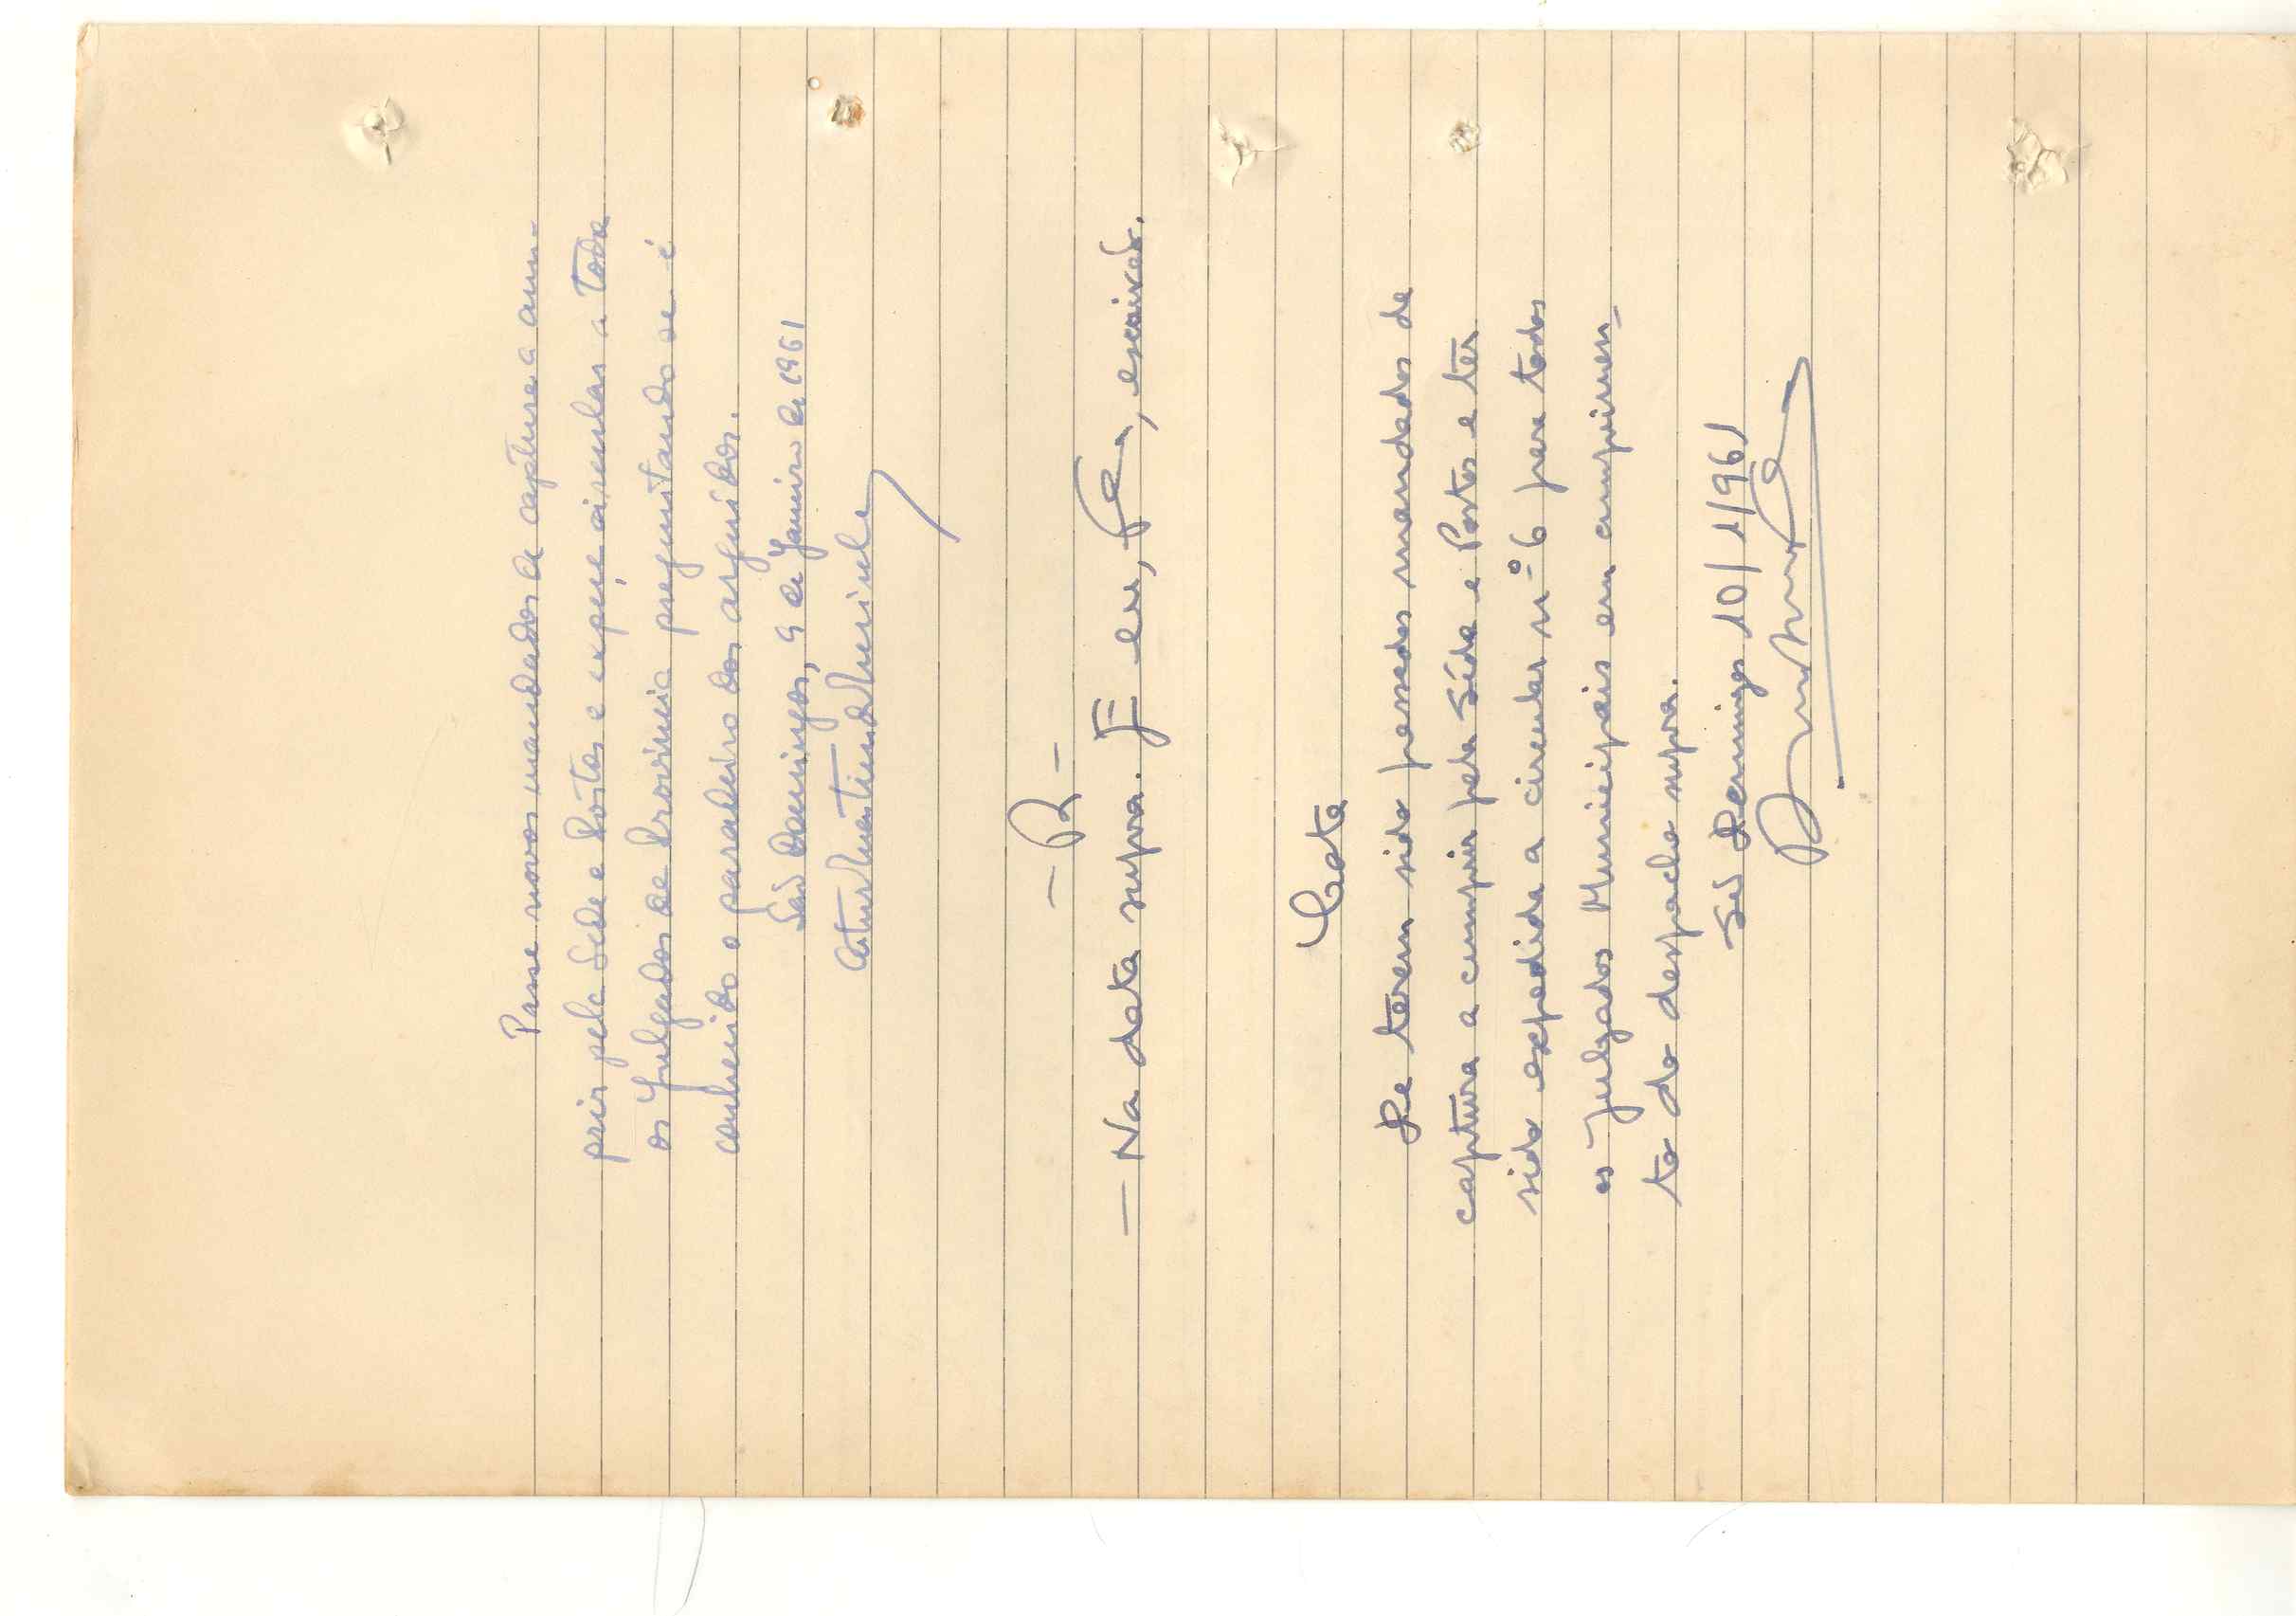 Passe novos mandados de captura a cum-
prir pela Sede e Postos e expeça circular a todos
os Julgados da Provincia preguntando se é
conhecido o paradeiro dos arguidos.
São Domingos, 9 de Janeiro de 1961
— R —
— Na data supra. E eu, escrivão.
Cota
De terem sido passados mandados de
captura a cumprir pela Séde e Postos e ter
sido expedida a circular nº 6 para todos
os Julgados Municipais em cumprimen-
to do despacho supra.
S. Domingos 10/1/961